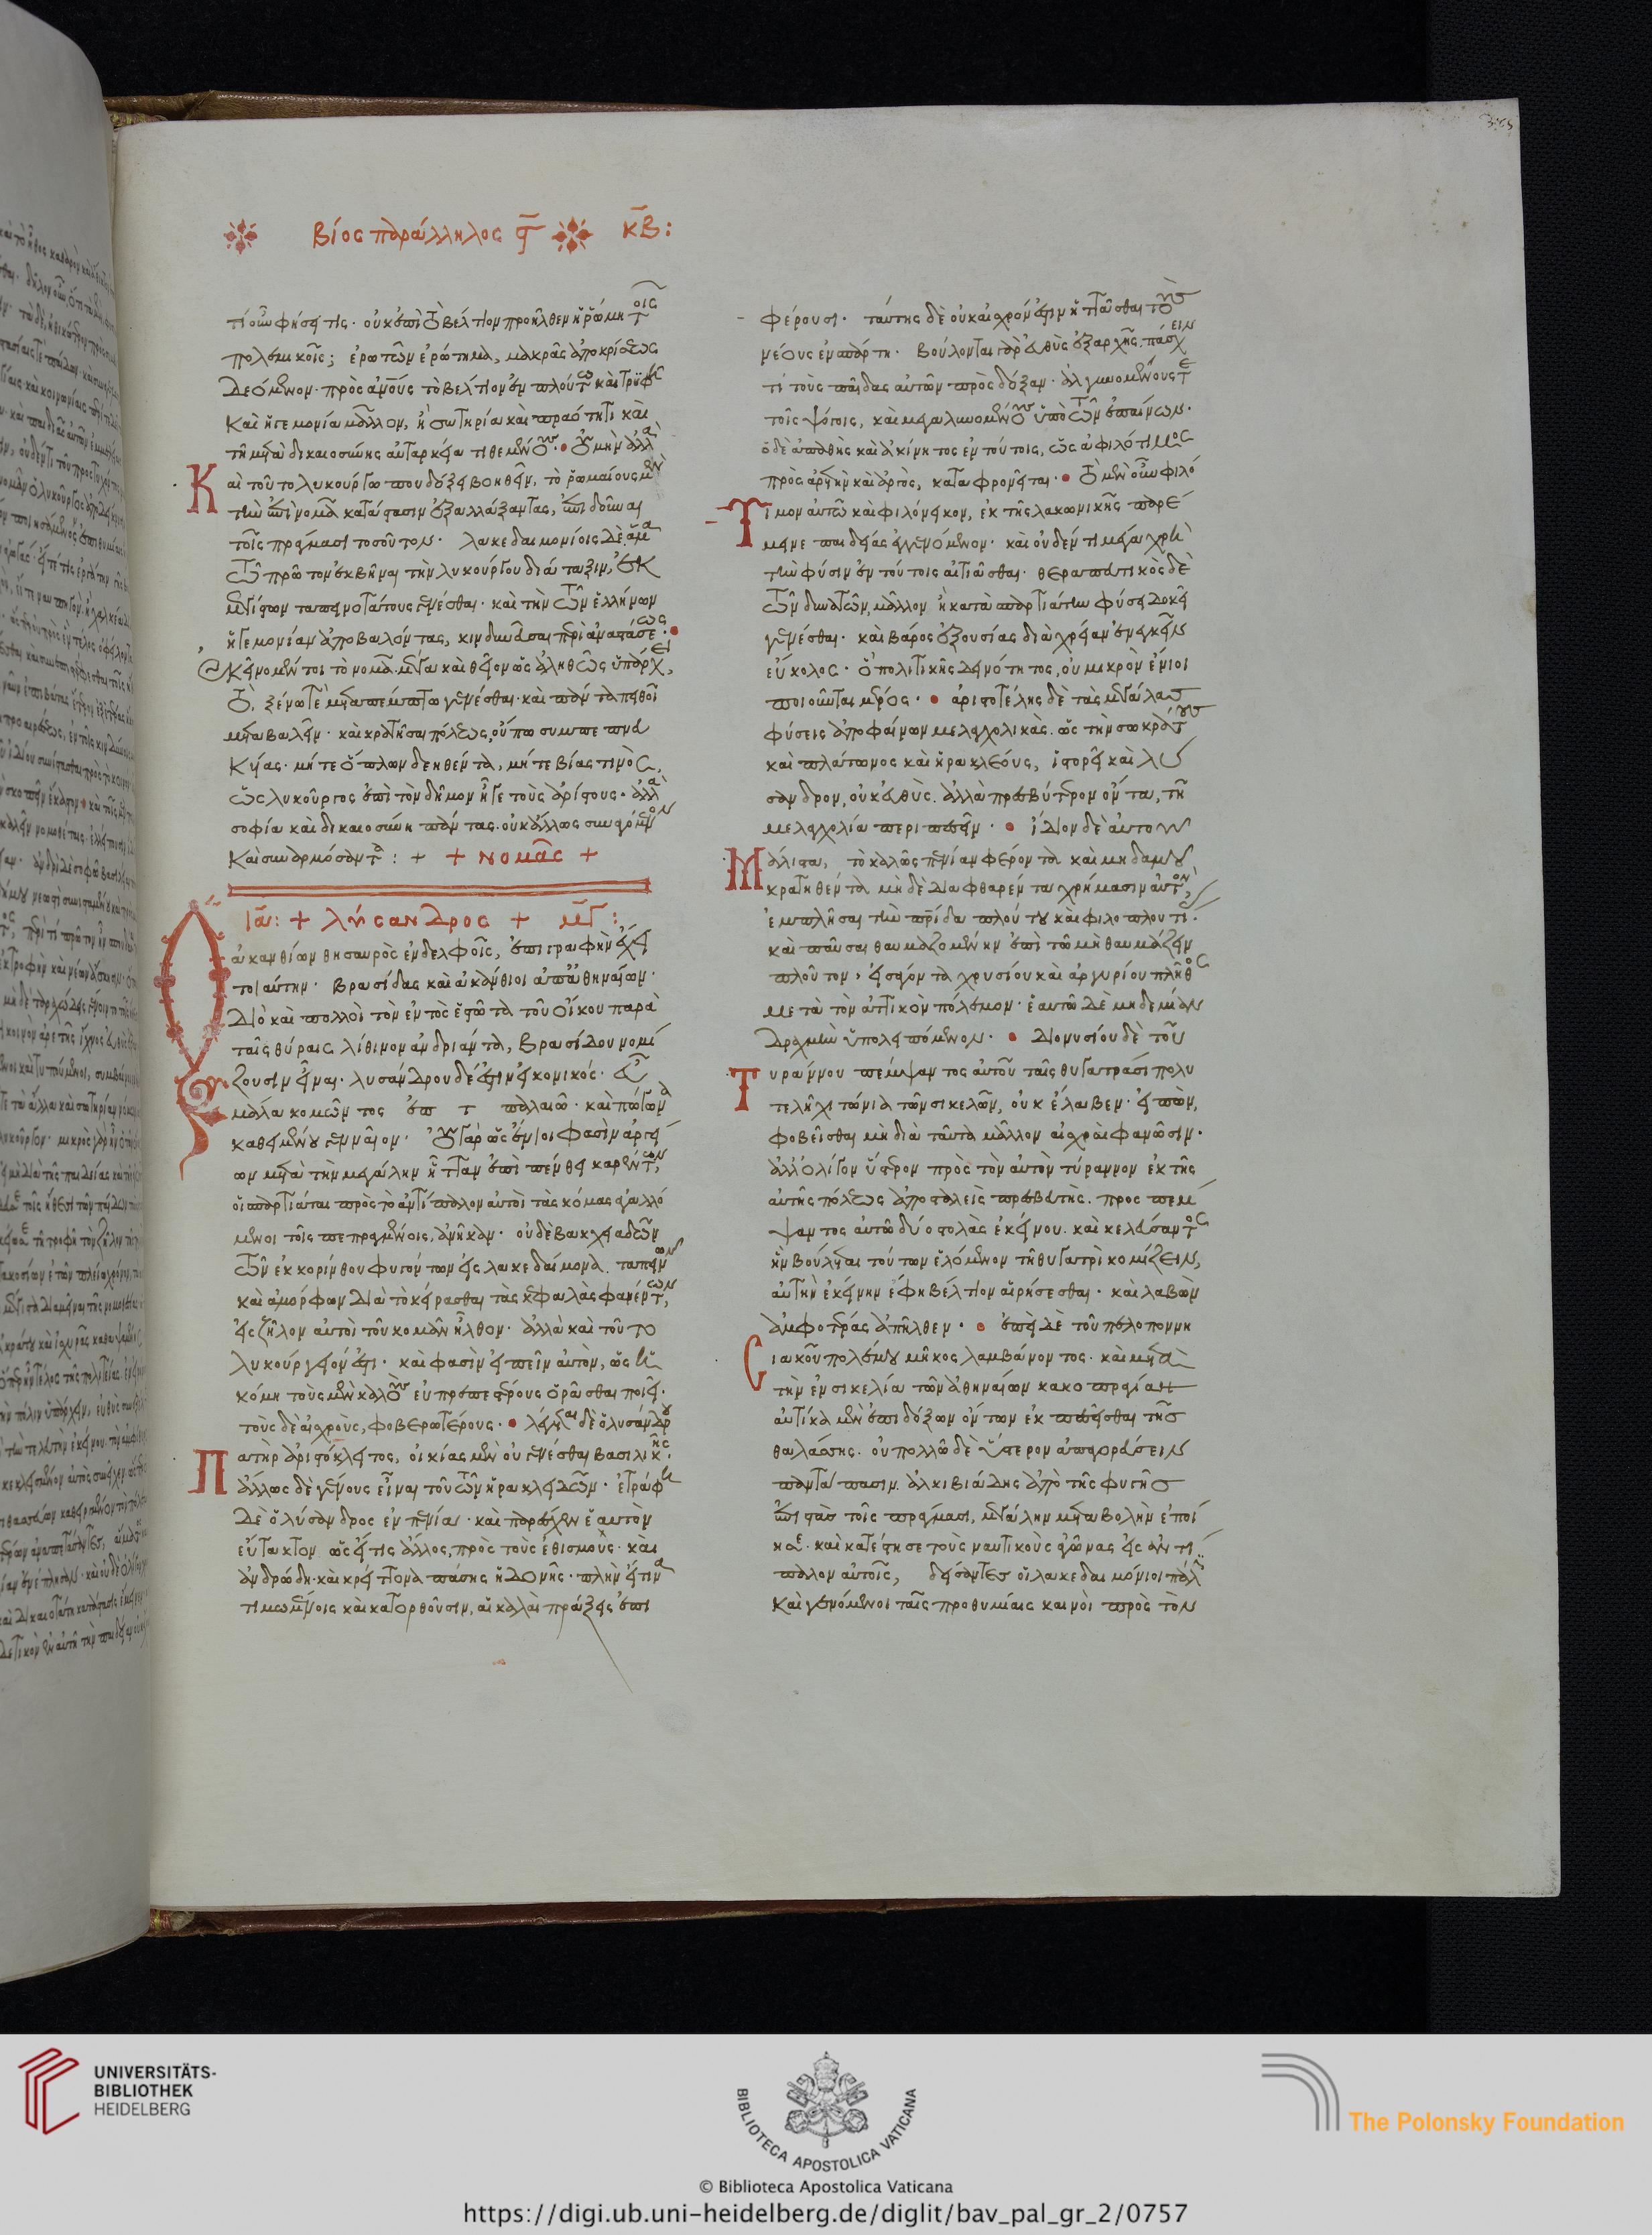 βίος παράλληλος
κβ:
τί οὖν φήσει τις· οὐκ ἐπὶ τὸ βέλτιον προῆλθεν ἡ ῥώμη τοῖς
πολεμικοῖς; ἐρωτῶν ἐρώτημα, μακρᾶς ἀποκρίσεως
δεόμενον· πρὸς ἀνους τὸ βέλτιον ἐν πλούτω καὶ τρυφῆ
καὶ ἡγεμονία μᾶλλον, ἢ σωτηρία καὶ πραότητι καὶ
τῆ μετὰ δικαιοσύνης αὐταρκεία τιθεμένους· οὐ μὴν ἀλλὰ
Καὶ τοῦτο λυκούργω που δόξει βοηθεῖν, τὸ ῥωμαίους μὲν
τὴν ἐπὶ νομᾶ κατάστασιν ἐξαλλάξαντας, ἐπιδοῦναι
τοῖς πράγμασι τοσοῦτον· λακεδαιμονίοις δὲ ἅμα
τῶ πρῶτον ἐκβῆναι τὴν λυκούργου διάταξιν, ἐκ
μεγίστων ταπεινοτάτους γενέσθαι· καὶ τὴν τῶν ἑλλήνων
ἡγεμονίαν ἀποβαλόντας, κινδυνεῦσαι περὶ ἀναστάσεως·
Ἐκεῖνο μέντοι τὸ νομᾶ μέγα καὶ θεῖον ὡς ἀληθῶς ὑπάρχει,
τὸ, ξένω τε μεταπέμπτω γενέσθαι· καὶ πάντα πειθοῖ
μεταβαλεῖν· καὶ κρατῆσαι πόλεως, οὔπω συμπεπνευ
κυίας· μήτε ὅπλων δεηθέντα, μήτε βίας τινὸς,
ὡς λυκοῦργος ἐπὶ τὸν δῆμον ἦγε τοὺς ἀρίστους· ἀλλὰ
σοφία καὶ δικαιοσύνη πάντας· οὐκ ἄλλως συναγόμενον
καὶ συναρμόσαντα: + + νομᾶς +
+ λύσανδρος +
Ὁ ἀκανθίων θησαυρὸς ἐν δελφοῖς, ἐπιγραφὴν ἔχει
τοιαύτην· βρασίδας καὶ ἀκάνθιοι ἀπ' ἀθηναίων·
διὸ καὶ πολλοὶ τὸν ἐντὸς ἑστῶτα τοῦ οἴκου παρὰ
ταῖς θύραις λίθινον ἀνδριάντα, βρασίδου νομί
ζουσιν εἶναι· λυσάνδρου δέ ἐστιν εἰκονικός· εὖ
μάλα κομῶντος ἐπ τ παλαιῶ· καὶ πώγωνα
καθειμένου γενναῖον· οὐ γὰρ ὡς ἔνιοι φασὶν ἀργεί
ων μετὰ τὴν μεγάλην ἧτταν ἐπὶ πένθει καρέντων,
οἱ σπαρτιάται πρὸς τὸ ἀντίπαλον αὐτοὶ τὰς κόμας ἀγαλλό
μενοι τοῖς πεπραγμένοις, ἀνῆκαν· οὐδὲ βακχιαδῶν
τῶν ἐκ κορίνθου φυγόντων εἰς λακεδαίμονα. ταπεινῶν
καὶ ἀμόρφων διὰ τὸ κείρασθαι τὰς κεφαλὰς φανέντων,
εἰς ζῆλον αὐτοὶ τοῦ κομᾶν ἦλθον· ἀλλὰ καὶ τοῦτο
λυκούργειόν ἐστι· καὶ φασὶν εἰπεῖν αὐτὸν, ὡς ἡ
κόμη τοὺς μὲν καλοὺς εὐπρεπεστέρους ὁρᾶσθαι ποιεῖ·
τοὺς δὲ αἰσχροὺς, φοβερωτέρους· λέγεται δὲ ὁ λυσάνδρου
Πατὴρ ἀριστόκλειτος, οἰκίας μὲν οὐ γενέσθαι βασιλικῆς·
ἄλλως δὲ γένους εἶναι τοῦ τῶν ἡρακλειδῶν· ἐτράφη
δὲ ὁ λύσανδρος ἐν πενία· καὶ παρέσχεν ἑαυτὸν
εὔτακτον ὡς εἴ τις ἄλλος, πρὸς τοὺς ἐθισμοὺς· καὶ
ἀνδρώδη· καὶ κρείττονα πάσης ἡδονῆς· πλὴν εἴ τινα
τιμωμένοις καὶ κατορθοῦσιν, αἱ καλαὶ πράξεις ἐπι
φέρουσι· ταύτης δὲ οὐκ αἰσχρόν ἐστιν ἡττᾶσθαι τοὺς
νέους ἐν σπάρτη· βούλονται γὰρ εὐθὺς ἐξαρχῆς πάσχειν
τι τοὺς παῖδας αὐτῶν πρὸς δόξαν· ἀλγυνομένους τε
τοῖς ψόγοις, καὶ μεγαλυνομένους ὑπὸ τῶν ἐπαίνων·
ὁ δὲ ἀπαθὴς καὶ ἀκίνητος ἐν τούτοις, ὡς ἀφιλότιμος
πρὸς ἀρετὴν καὶ ἀργὸς, καταφρονεῖται· τὸ μὲν οὖν φιλό
Τιμον αὐτῶ καὶ φιλόνεικον, ἐκ τῆς λακωνικῆς παρέ
μεινε παιδείας ἐγγενόμενον· καὶ οὐδέν τι μέγα χρὴ
τὴν φύσιν ἐν τούτοις αἰτιᾶσθαι· θεραπευτικὸς δὲ
τῶν δυνατῶν, μᾶλλον ἢ κατὰ σπαρτιάτην φύσει δοκεῖ
γενέσθαι· καὶ βάρος ἐξουσίας διὰ χρείαν ἐνεγκεῖν
εὔκολος· ὃ πολιτικῆς δεινότητος, οὐ μικρὸν ἔνιοι
ποιοῦνται μέρος· ἀριστοτέλης δὲ τὰς μεγάλας
φύσεις ἀποφαίνων μελαγχολικὰς· ὡς τὴν σωκράτους
καὶ πλάτωνος καὶ ἡρακλέους, ἱστορεῖ καὶ λύ
σανδρον, οὐκ εὐθὺς· ἀλλὰ πρεσβύτερον ὄντα, τῆ
μελαγχολία περιπεσεῖν· ἴδιον δὲ αὐτοῦ
Μάλιστα, τὸ καλῶς πενίαν φέροντα καὶ μηδαμοῦ
κρατηθέντα μὴ δὲ διαφθαρέντα χρήμασιν αὐτὸν,
ἐμπλῆσαι τὴν πρίδα πλούτου καὶ φιλοπλουτί.
καὶ παῦσαι θαυμαζομένην ἐπὶ τῶ μὴ θαυμάζειν
πλοῦτον· εἰσάγοντα χρυσίου καὶ ἀργυρίου πλῆθος
μετὰ τὸν ἀττικὸν πόλεμον· ἑαυτῶ δὲ μηδεμίαν
δραχμὴν ὑπολειπόμενον· διονυσίου δὲ τοῦ
Τυράννου πέμψαντος αὐτοῦ ταῖς θυγατράσι πολυ
τελῆ χιτώνια τῶν σικελῶν, οὐκ ἔλαβεν· εἰπὼν,
φοβεῖσθαι μὴ διὰ ταῦτα μᾶλλον αἰσχραὶ φανῶσιν·
ἀλλ' ὀλίγον ὕστερον πρὸς τὸν αὐτὸν τύραννον ἐκ τῆς
αὐτῆς πόλεως ἀποσταλεὶς πρεσβευτὴς· προσπέμ
ψαντος αὐτῶ δύο στολὰς ἐκείνου· καὶ κελεύσαντος
ἣν βούλεται τούτων ἑλόμενον τῆ θυγατρὶ κομίζειν,
αὐτὴν ἐκείνην ἔφη βέλτιον αἱρήσεσθαι· καὶ λαβὼν
ἀμφοτέρας ἀπῆλθεν· ἐπεὶ δὲ τοῦ πελοποννη
Σιακοῦ πολέμου μῆκος λαμβάνοντος· καὶ μετὰ
τὴν ἐν σικελία τῶν ἀθηναίων κακοπραγίαν
αὐτίκα μὲν ἐπιδόξων ὄντων ἐκπεσεῖσθαι τῆς
θαλάσσης· οὐ πολλῶ δὲ ὕστερον ἀπαγορεύσειν
παντάπασιν. ἀλκιβιάδης ἀπὸ τῆς φυγῆς
ἐπιστὰς τοῖς πράγμασι, μεγάλην μεταβολὴν ἐποί
ησε· καὶ κατέστησε τοὺς ναυτικοὺς ἀγῶνας εἰς ἀντί
παλον αὐτοῖς, δείσαντες οἱ λακεδαιμόνιοι πάλιν
καὶ γενόμενοι ταῖς προθυμίαις καινοὶ πρὸς τὸν
UNIVERSITÄTS-
BIBLIOTHEK
HEIDELBERG
BIBLIOTECA APOSTOLICA VATICANA
The Polonsky Foundation
© Biblioteca Apostolica Vaticana
https://digi.ub.uni-heidelberg.de/diglit/bav_pal_gr_2/0757